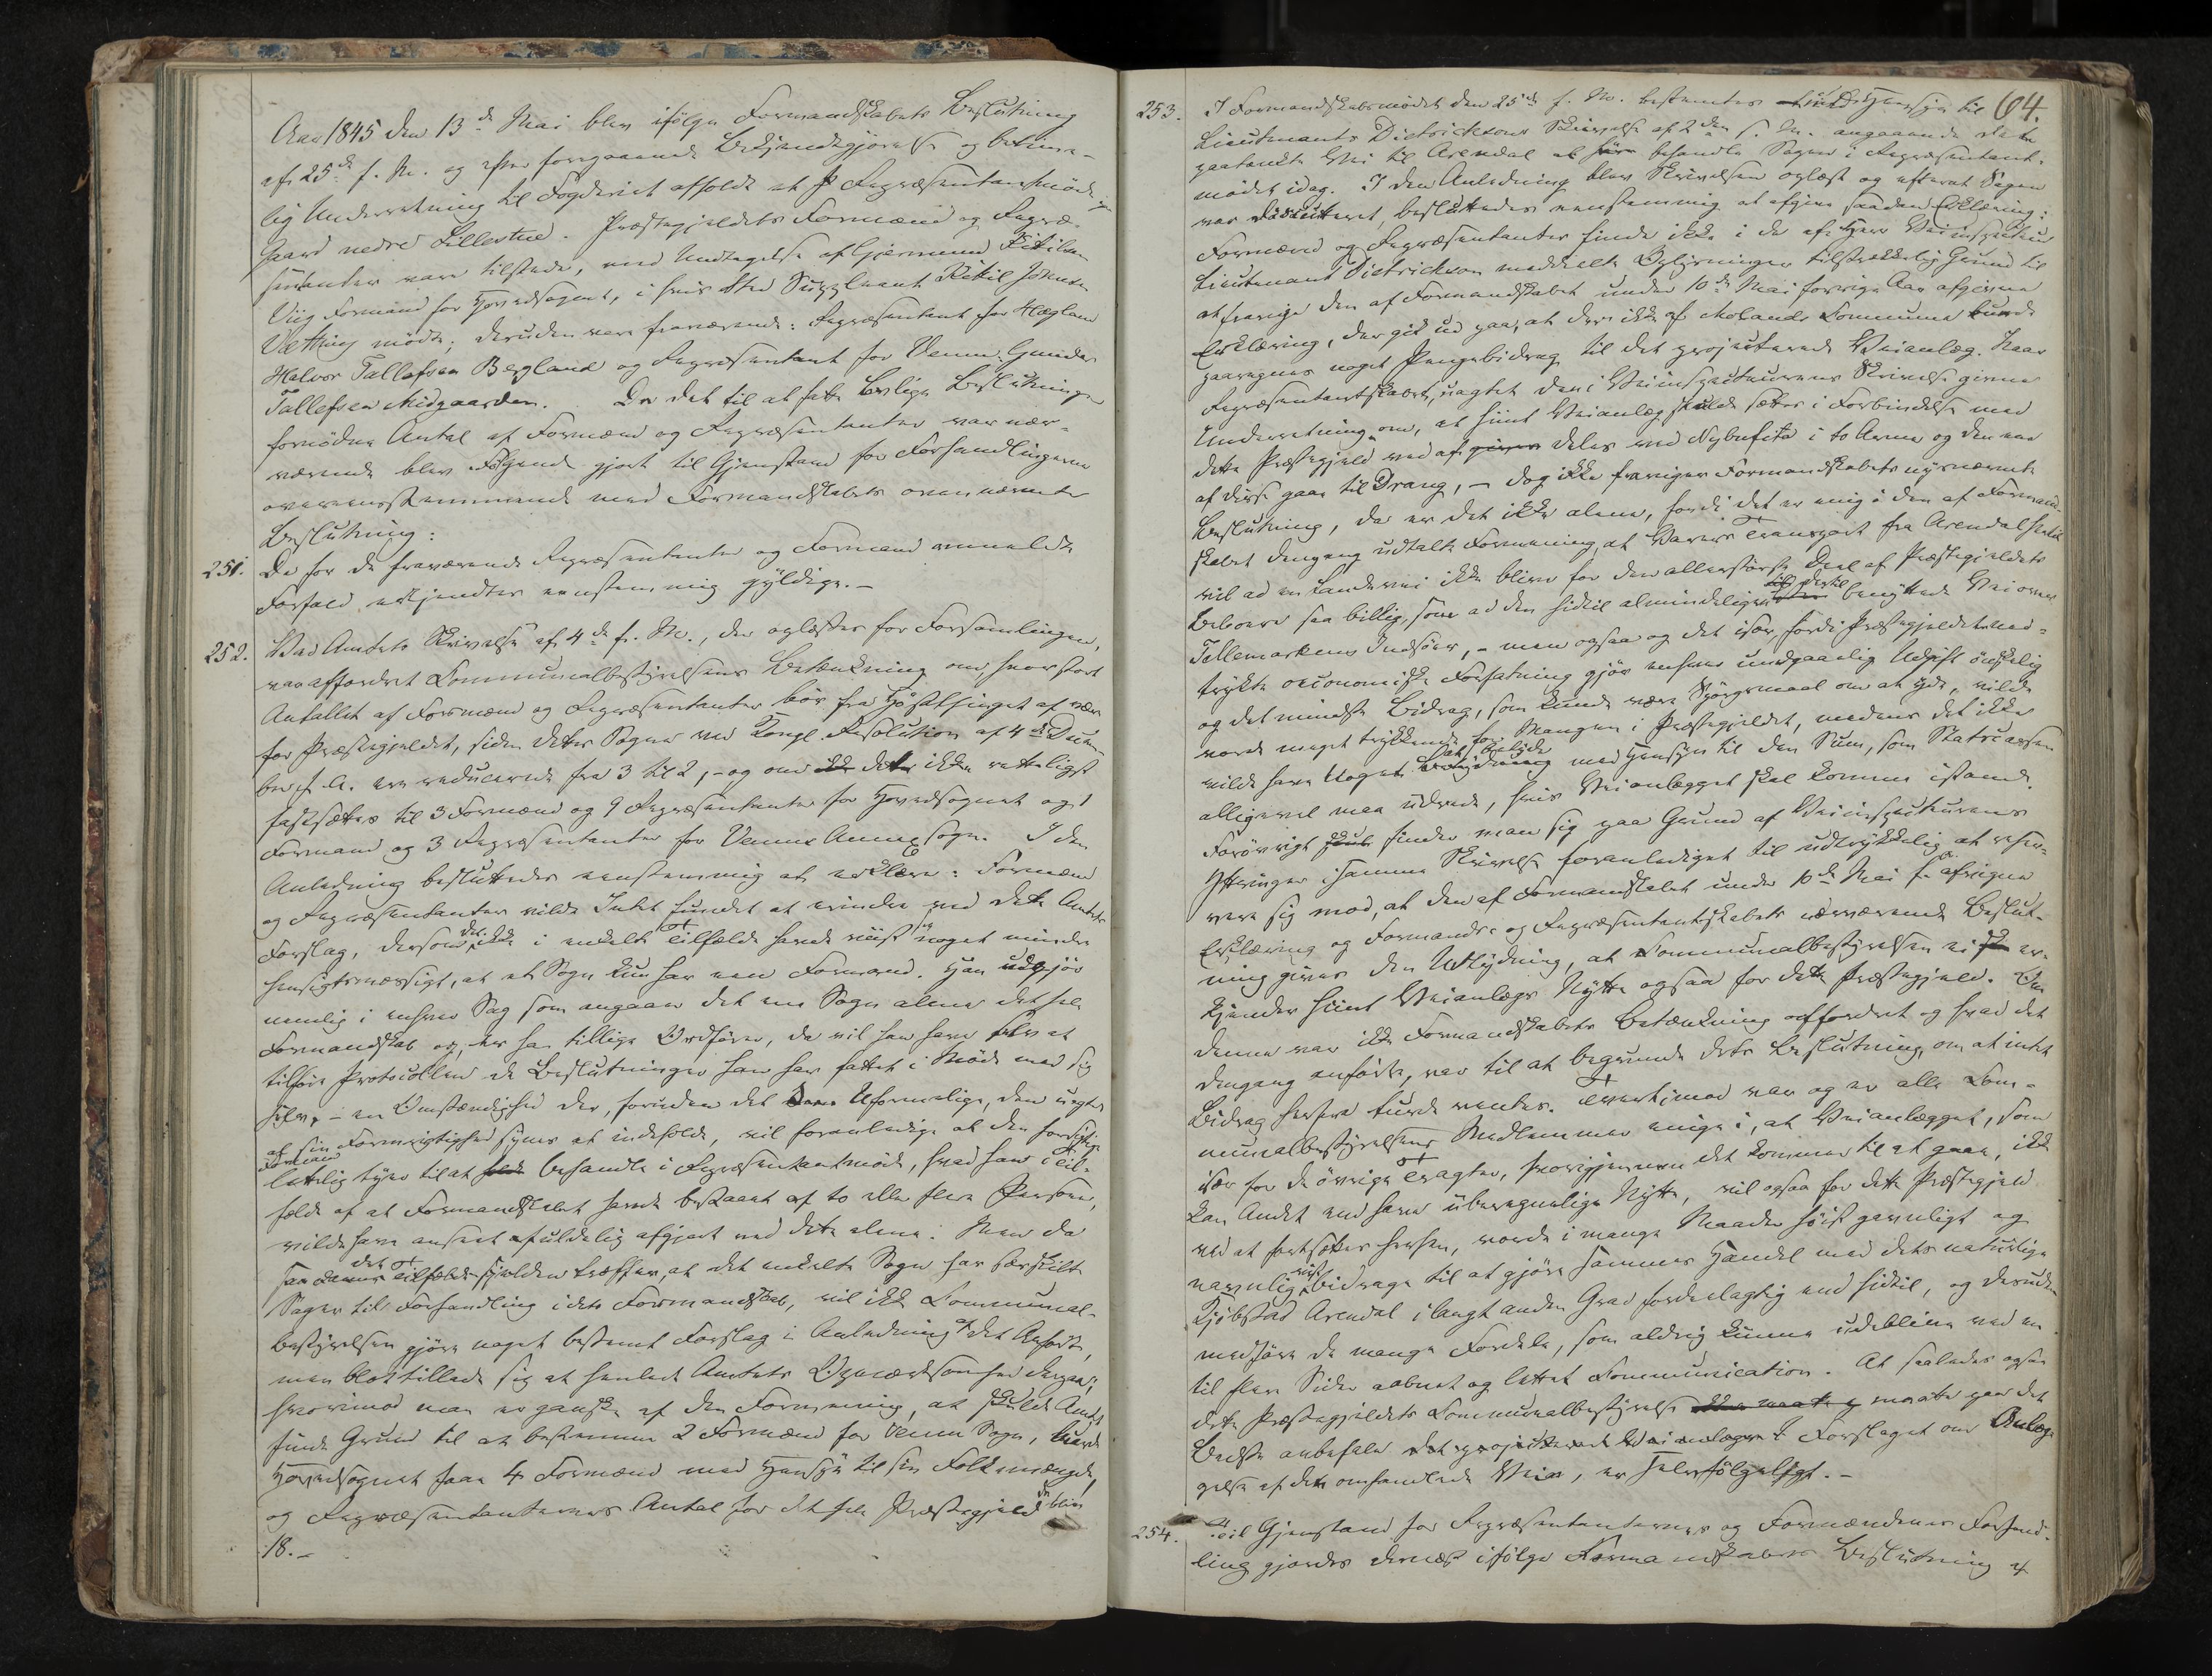 Aar 1845 den 13de Mai blev ifølge Formandskabets Beslutning
af 25de f. M. og efter foregaaende Bekjendtgjørelse og betime-
lig Underretning til Fogderiet afholdt et Repræsentantmøde paa
Gaard nedre Lillestue. Præstegjeldets Formænd og Repræ-
sentanter vare tilstede, med Undtagelse af Gjermund Kitilsen
Viig Formand for Hovedsognet, i hvis Sted Suppleant Kittil Johnsen
Vætting mødte; desuden vare fraværende: Repræsentant for
Halvor Tallefsen Bergland og Repræsentant for Vemme: Gunder
Tallefsen Midgaarden. Da det til at fatte lovlige Beslutninger
fornødne Antal af Formænd og Repræsentanter var nær-
værende blev Følgende gjort til Gjenstand for Forhandlingerne
overensstemmende med Formandskabets ovennævnte
Beslutning:
251. Da for de fraværende Repræsentanter og Formand anmeldte
Forfald erkjendtes eenstemmig gyldige.-
252. Ved Amtets Skrivelse af 4de f. M., der oplæstes for Forsamlingen,
var affordret Communalbestyrelsens Betænkning om, hvor stort
Antallet af Formænd og Repræsentanter bør fra Høstthinget af være
for Præstegjeldet, siden dets Sogne ved Kongl. Resolution af 4de Decem-
ber f. A. ere reducerede fra 3 til 2,-og om dette ikke retteligst
fastsættes til 3 Formænd og 9 Repræsentanter for Hovedsognet og 1
Formand og 3 Repræsentanter for Vemme Annexsogn. I den
Anledning besluttedes eenstemmig at erklære: Formænd
og Repræsentanter vilde Intet fundet at erindre ved dette Amtets
Forslag, dersom det ikke i enkelte Tilfælde havde viist sig noget mindre
hensigtsmæssigt, at et Sogn kun har een Formand. Han udgjør
nemlig i enhver Sag som angaaer det ene Sogn alene det hele
Formandskab og, er han tillige Ordfører, da vil han have selv at
tilføre Protocollen de Beslutninger han har fattet i Møde med sig
selv,- en Omstændighed der, foruden det Uformelige, den uagtet
at sin Formrigtighed synes at indeholde, vil foranledige at den forsigtige
Formand
lettelig tyer til at behandle i Repræsentantmøde, hvad han i Til-
fælde af at Formandskabet havde bestaaet af to eller flere Personer,
vilde have anseet afuldelig afgjort ved dette alene. Men da
det Tilfælde sjelden træffer, at det enkelte Sogn har særskilte
Sager til Forhandling i dets Formandskab, vil ikke Communal-
bestyrelsen gjøre noget bestemt Forslag i Anledning af det Anførte,
men blot tillade sig at henlede Amtets Opmærksomhed derpaa;
hvorimod man er ganske af den Formening, at skulde Amtet
finde Grund til at bestemme 2 Formænd for Vemme Sogn, burde
Hovedsognet faae 4 Formænd med Hensyn til sin Folkemængde,
og Repræsentanternes Antal for det hele Præstegjeld da blive
18.-
64.
253. I Formandskabsmødet den 25de f. M. bestemtes med Hensyn til
Lieutenant Dietrichsons Skrivelse af 2den s. M. angaaende
paatænkte Vei til Arendal at behandle Sagen i Repræsentant-
mødet idag. I den Anledning blev Skrivelsen oplæst og efterat Sagen
var discutteret, besluttedes eenstemmig at afgive saadan Erklæring:
Formænd og Repræsentanter finde ikke i de af Herr Veiinspecteur
Lieutenant Dietrichson meddeelte Oplysninger tilstrækkelig Grund til
at fravige den af Formandskabet under 10de Mai forrige Aar afgivne
Erklæring, der gik ud paa, at der ikke af Molands Commune burde
paaregnes noget Pengebidrag til det projecterede Veianlæg. Naar
Repræsentantskabet, uagtet den i Veiinspecteurens Skrivelse givne
Underretning om, at hiint Veianlæg skulde sættes i Forbindelse med
dette Præstegjeld ved at deles ved Nybufita i to Arme og den ene
af disse gaae til Drang,- dog ikke fraviger Formandskabets nysnævnte
Beslutning, da er det ikke alene, fordi det er enig i den af Formand-
skabet dengang udtalte Formening, at Varers Transport fra Arendal hertil
vil ad en Landevei ikke blive for den allerstørste Deel af Præstegjeldets
Beboere saa billig, som ad den hidtil almindeligen dertil benyttede Vei over
Tellemarkens Indsøer,- men ogsaa og det især, fordi Præstegjeldets ned-
trykte oeconomiske Forfatning gjør enhver undgaaelig Udgift ønskelig
og det mindste Bidrag, som kunde være Spørgsmaal om at yde, vilde
vorde meget trykkende for Mangen i Præstegjeldet, medens det ikke
vilde have Noget at betyde med Hensyn til den Sum, som Statscassen
alligevel maa udrede, hvis Veianlægget skal komme istand.
Forøvrigt finder man sig paa Grund af Veiinspecteurens
Yttringer i samme Skrivelse foranlediget til udtrykkelig at reser-
vere sig mod, at den af Formandskabet under 10de Mai f. A. afgivne
Erklæring og Formænds- og Repræsentantskabets nærværende Beslut-
ning gives den Udtydning, at Communalbestyrelsen ei er-
kjender hiint Veianlægs Nytte ogsaa for dette Præstegjeld. Om
denne var ikke Formandskabets Betænkning affordret og hvad det
dengang anførte, var til at begrunde dets Beslutning, om at intet
Bidrag herfra turde ventes. Tvertimod var og er alle Com-
munalbestyrelsens Medlemmer enige i, at Veianlægget, som
især for de øvrige Tragter, hvorigjennem det kommer til at gaae, ikke
kan Andet end have uberegnelig Nytte, vil ogsaa for dette Præstegjeld
ved at fortsættes herhen, vorde i mange Maader høist gavnligt og
navnlig vist bidrage til at gjøre sammes Handel med dets naturlige
Kjøbstad Arendal i langt anden Grad fordelagtig end hidtil, og desuden
medføre de mange Fordele, som aldrig kunne udeblive ved en
til flere Sider aabnet og lettet Communication. At saaledes ogsaa
dette Præstegjelds Communalbestyrelse maatte paa det
Bedste anbefale Forslaget om Anlæg-
gelse af den omhandlede Vei, er selvfølgeligt.-
254. Til Gjenstand for Repræsentanternes og Formændenes Forhand-
ling gjordes dernæst ifølge Formandskabets Beslutning af